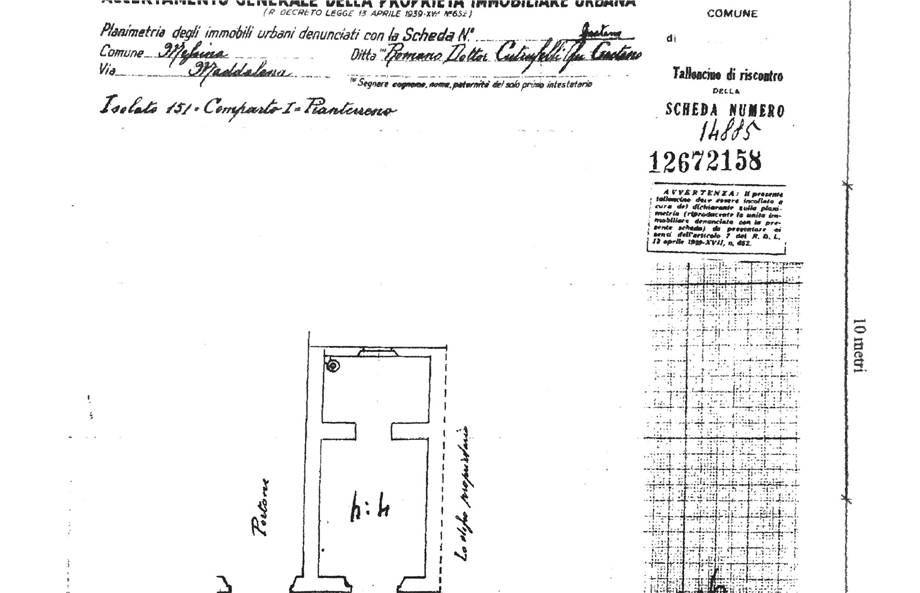 ACCERTAMENTO GENERALE DELLA PROPRIETÀ IMMOBILIARE URBANA
(R. DECRETO LEGGE 13 APRILE 1939-XVII N° 652)
Planimetria degli immobili urbani denunciati con la Scheda N.°
Comune Messina Ditta (1) Romano Dottor
Via Maddalena
(1) Segnare cognome, nome, paternità del solo primo intestatario
Isolato 151 = Comparto I = Pianterreno
COMUNE
di
Talloncino di riscontro
DELLA
SCHEDA NUMERO
14885
12672158
AVVERTENZA: Il presente
talloncino deve essere incollato a
cura del dichiarante sulla plani-
metria (riproducente la unità im-
mobiliare denunciata con la pre-
sente scheda) da presentare ai
sensi dell'articolo 7 del R. D. L.
13 aprile 1939-XVII, n. 652.
10 metri
Portone
Lo stesso proprietario